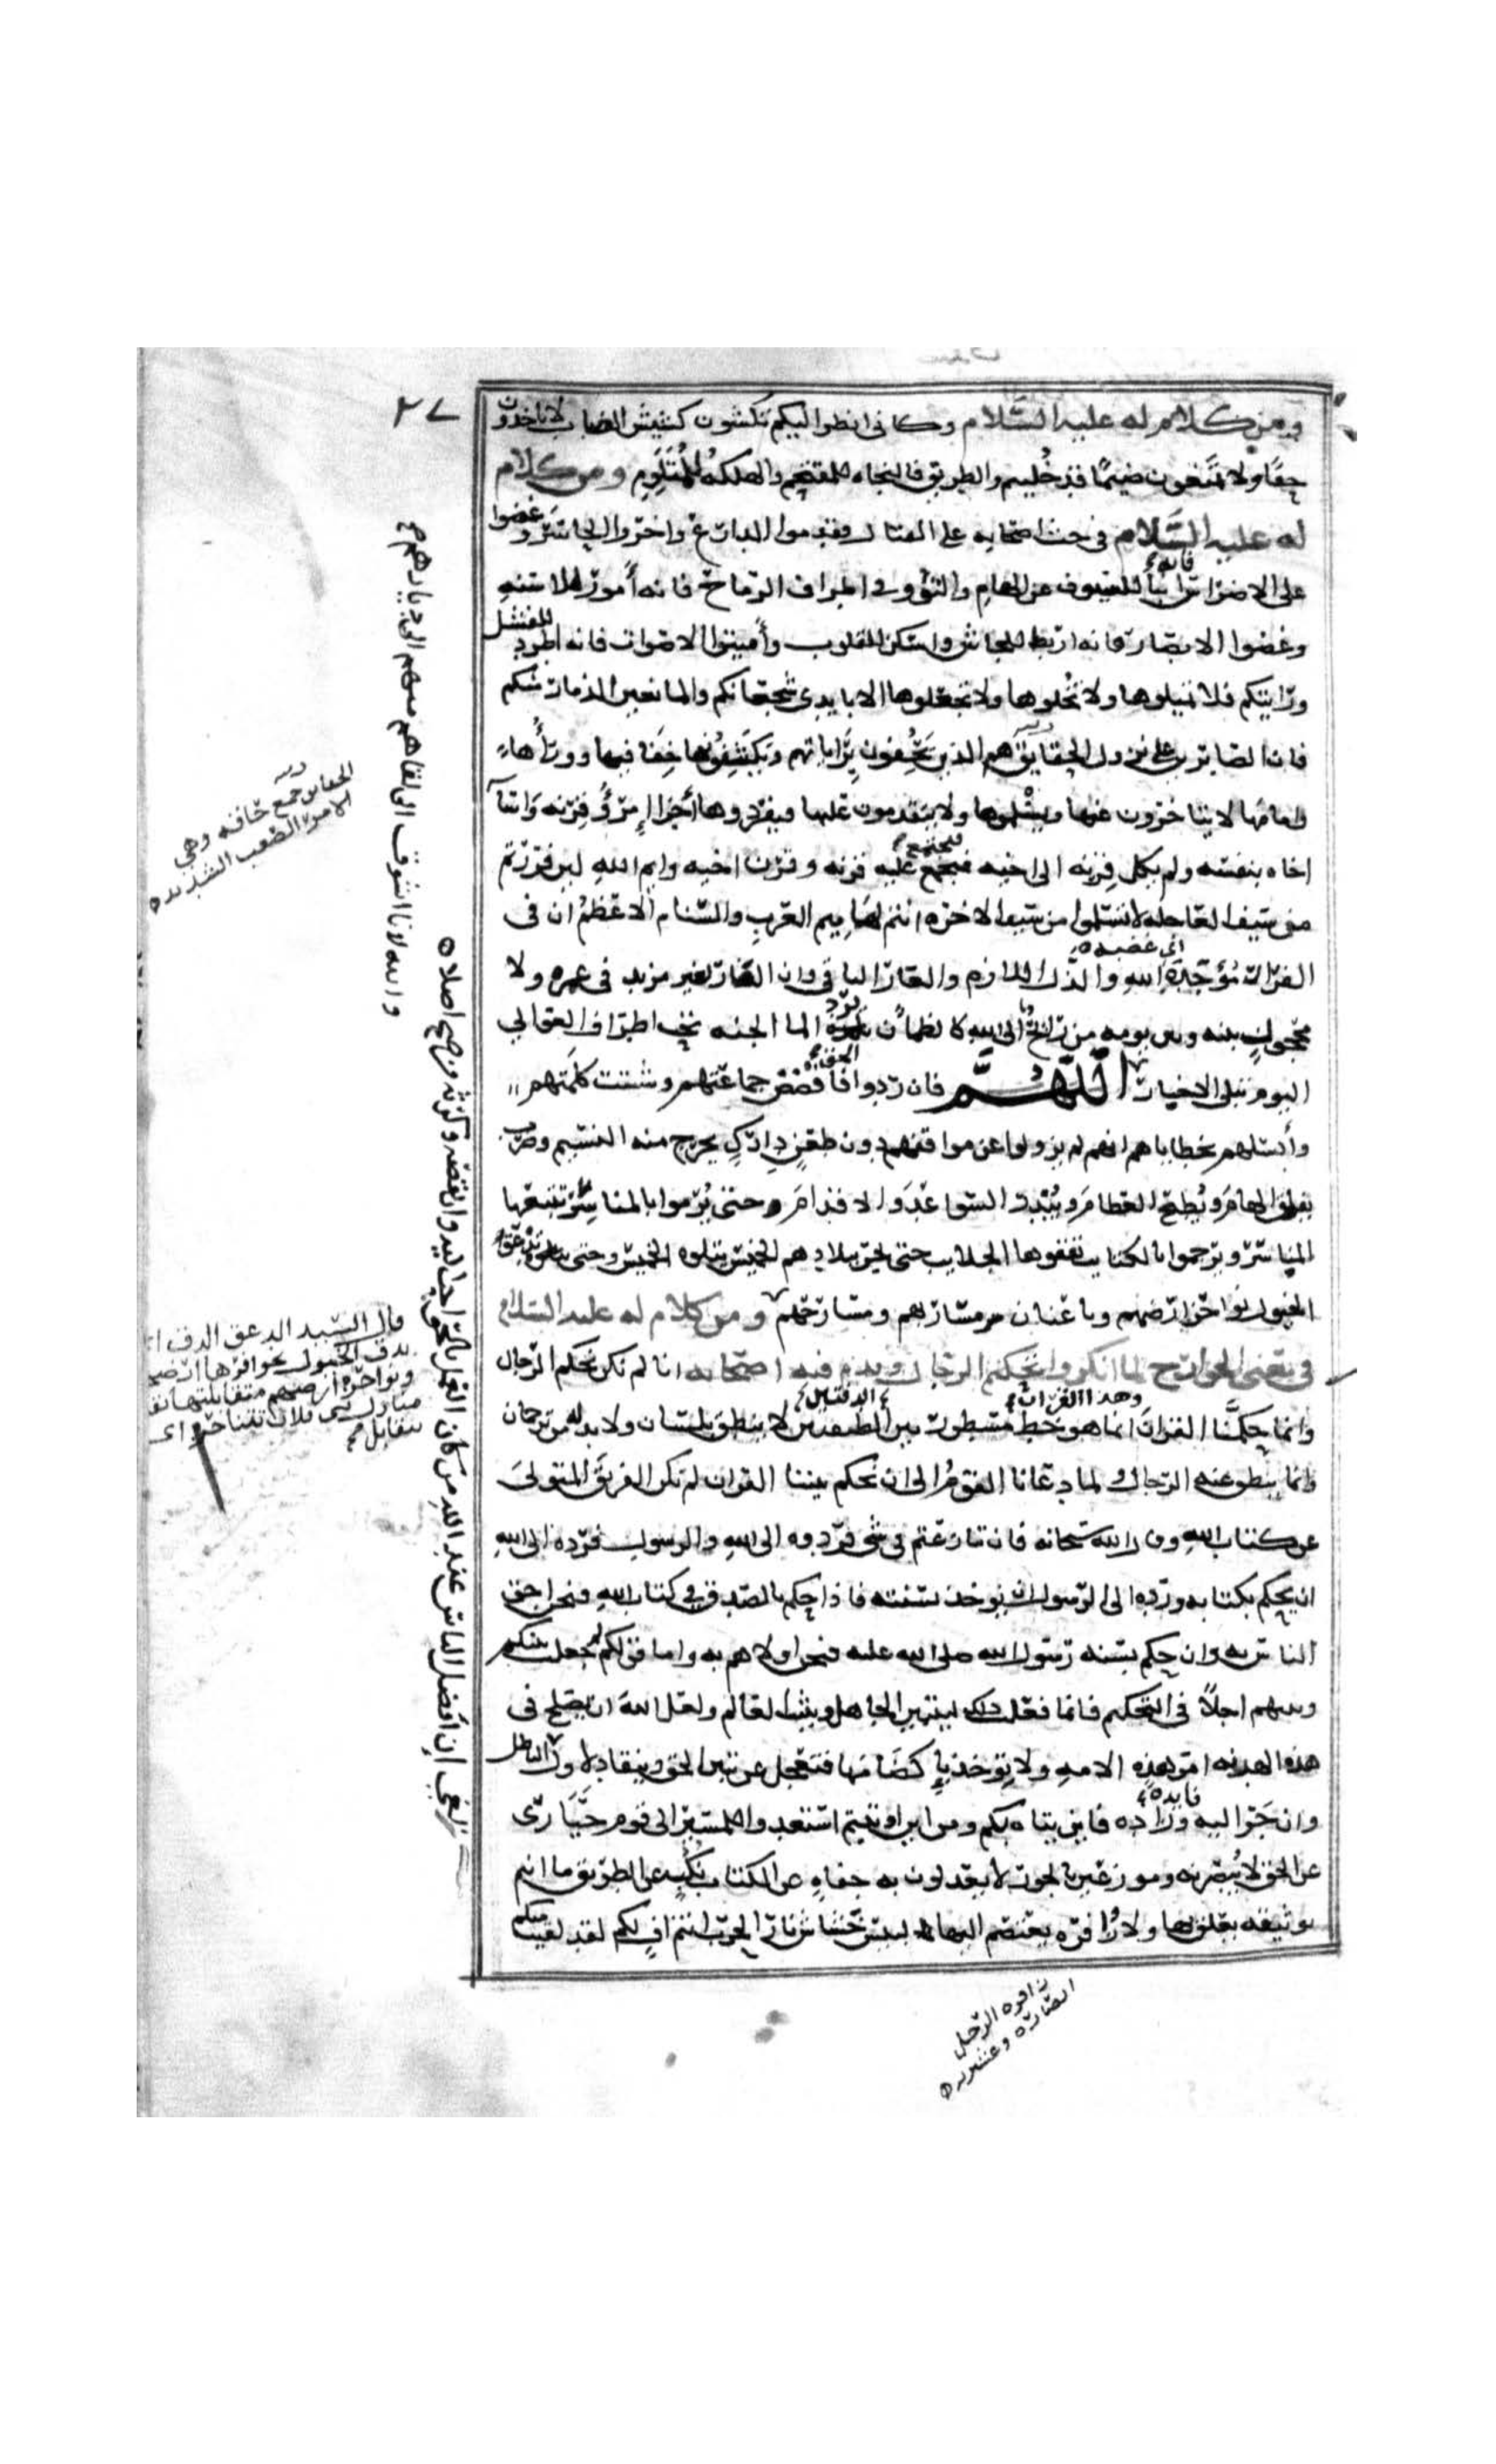 ٢٧
ومن كلام له عليه السلام وكاني انظر اليكم تكشون كشيش الضباب لا تاخذون
حقا ولا تمنعون ضيما قد خُليتم والطريق فالنجاه للمقتحم والهلكه للمُتَلَوِّمِ ومن كلام
له عليه السلام في حث اصحابه على القتال فقدموا الدارع واخروا الحاسر وعضوا
على الاضراس فانه انبا للسيوف عن الهام والتووا في اطراف الرماح فانه أمور للاسنه
وغضوا الابصار فانه اربط للجاش واسكن للقلوب وأميتوا الاصوات فانه اطرد للفشل
ورايتكم فلا تميلوها ولا تُخلوها ولا تجعلوها الا بايدي شجعانكم والمانعين الذمار منكم
فان الصابرين على نزول الحقايق هم الذين يَحُفون بِراياتهم ويكتنفونها حِفافيها ووراءها
وامامها لا يتاخرون عنها فيسْلموها ولا يتقدمون عليها فيفردوها أجزا امرؤٌ قِرنه وَاسَا
اخاه بنفسه ولم يكل قِرنه الى اخيه فيجتمع عليه قرنه وقرن اخيه وايم اللهِ لين فررتم
من سيف العاجله لا تسلموا من سيف الاخره انتم لهاميم العرب والسنام الاعظمُ ان في
الفرار مَوْجِدَةَ اللهِ والذل اللازم والعار الباقي وان الفار لغير مزيد في عمره ولا
اي غضبه
محجوز بينه وبين يومه من رائحٌ الى الله كالظمأن يرد الما الجنه تحت اطراف العوالي
اليوم تبلى الاخبار اللهم فان ردوا الحق فافضض جماعتهم وشتت كلمتهم
وأبسلهم بخطاياهم انهم لن يزولوا عن مواقفهم دون طعن دِراكٍ يخرج منه النسيم وضرب
يفلق الهام ويُطيح العظام ويُندر السواعِدَ والاقدام وحتى يُرموا بالمناسر تتبعها
المناسر ويرجموا بالكتايب تقفوها الجلايب حتى يجر ببلادهم الخميس يتلوه الخميس وحتى تدعق
الخيول بنواحر ارضهم وباعنان مساربهم ومسارحهم ومن كلام له عليه السلام
في معنى الخوارج لما انكروا تحكيم الرجال ويذم فيه اصحابه انا لم نحكم الرجال
وانما حكمنا القران وهذا القران انما هو خط مسطور بين الدفتين لا ينطق بلسان ولا بد له من ترجمان
وانما ينطق عنه الرجال ولما دعانا القومُ الى ان نحكم بيننا القران لم نكن الفريقَ المتوليَ
عن كتاب اللهِ وقال الله سبحانه فان تنازعتم في شي فردوه الى اللهِ والرسول فرده الى اللهِ
ان نحكم بكتابه ورده الى الرسول ان نوخذ بسنته فاذا حكم بالصدق في كتاب اللهِ فنحن احق
الناس به وان حكم بسنه رسول الله صلى الله عليه فنحن اولاهم به واما قولكم لم جعلت بينكم
وبينهم اجلاً في التحكيم فانما فعلت ذلك ليتبين الجاهل ويتثبت العالم ولعل اللهَ ان يصلح في
هذه الهدنه امر هذه الامه ولا يوخذ باكضامها فتعجل عن تبين الحق وتنقاد لاول الباطل
وان جَرّ اليه فايده وزاده فاين يتاه بكم ومن اين اوتيتم استعدوا للمسير الى قوم حيارى
عن الحق لا يُبصرونه وموزعين بالجور لا يعدلون به جفاهٍ عن الكتاب نُكُبٍ عن الطريق ما انتم
بوثيقه يعلق بها ولا زوافره يعتصم اليها لبيس حُشاش نار الحرب انتم افٍ لكم لقد لقيت منكم
زافره الرجل
انصاره وعشيرته
الحقايق جمع حاقه وهي
الامور الصعب الشديده
والله لانا اشوق الى لقاهم منهم الى ديارهم
ان افضل الناس عند الله من كان العمل بالحق احب اليه وان نقصه وكرثه
قال السيد الدعق الدق اي
يدق الخيول بحوافرها ارضهم
ونواحر ارضهم متقابلتها يقال
منازل بني فلان تتناحر اي
تتقابل